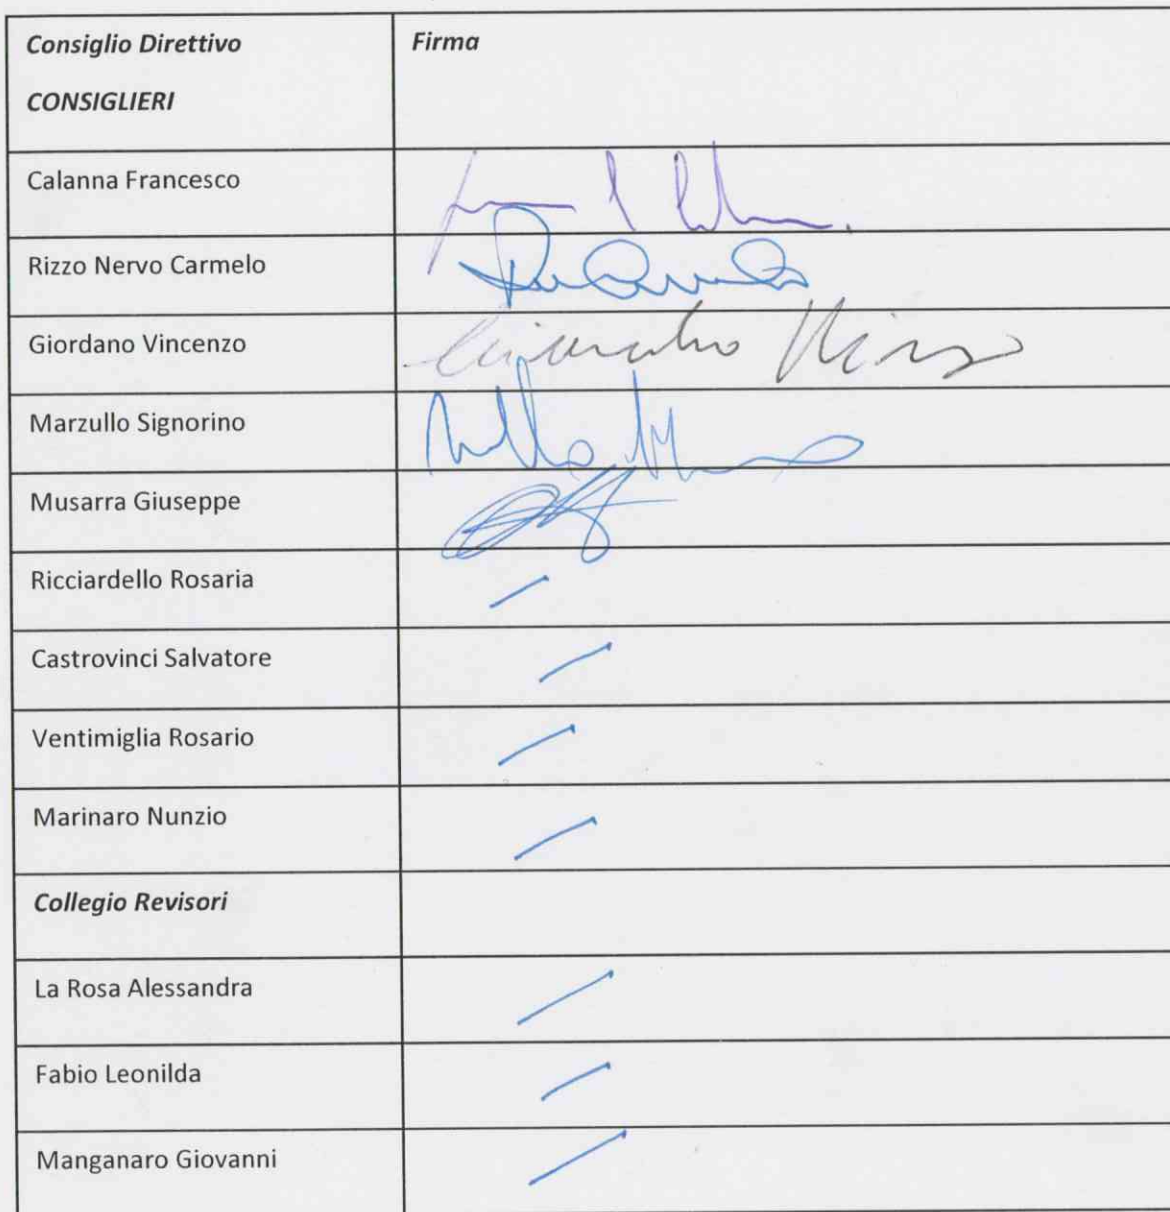 Consiglio Direttivo Firma
CONSIGLIERI
Calanna Francesco
Rizzo Nervo Carmelo
Giordano Vincenzo
Marzullo Signorino
Musarra Giuseppe
Ricciardello Rosaria
Castrovinci Salvatore
Ventimiglia Rosario
Marinaro Nunzio
Collegio Revisori
La Rosa Alessandra
Fabio Leonilda
Manganaro Giovanni